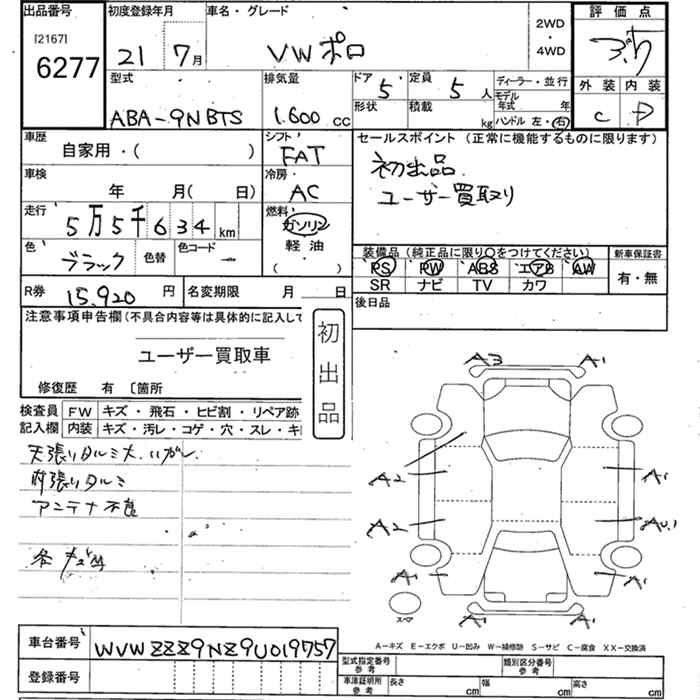 出品番号
[2167]
6277
初度登録年月
21 7月
車名・グレード
VW ポロ
2WD
・
4WD
評価点
3.5
外装 内装
C D
型式
ABA-9NBTS
排気量
1.600 CC
ドア
5
定員
5人
形状
積載
kg
ディーラー・並行
モデル年式 年
ハンドル 左・右
車歴
自家用・( )
シフト
FAT
セールスポイント（正常に機能するものに限ります）
初出品
ユーザー買取り
車検
年 月( 日)
冷房
AC
走行
5万5千634 km
燃料
ガソリン
軽油
( )
色
ブラック
色替
色コード
装備品（純正品に限り○をつけてください）
PS PW ABS エアB AW
SR ナビ TV カワ
新車保証書
有・無
R券
15.920 円
名変期限 月 日
後日品
注意事項申告欄（不具合内容等は具体的に記入して
ユーザー買取車
修復歴 有 〔箇所
初出品
検査員記入欄
FW キズ・飛石・ヒビ割・リペア跡
内装 キズ・汚レ・コゲ・穴・スレ・キ
天張りタルミ大
タルミ
アンテナ不良
各キズ凹
A3 A1
A2 A1
A2 AU1
A1 A1
A1 A1
スペア
A－キズ E－エクボ U－凹み W－補修跡 S－サビ C－腐食 XX－交換済
車台番号
WVWZZZ9NZ9U019757
登録番号
型式指定番号
参考
類別区分番号
参考
車庫証明所
参考
長さ cm 幅 cm 高さ cm